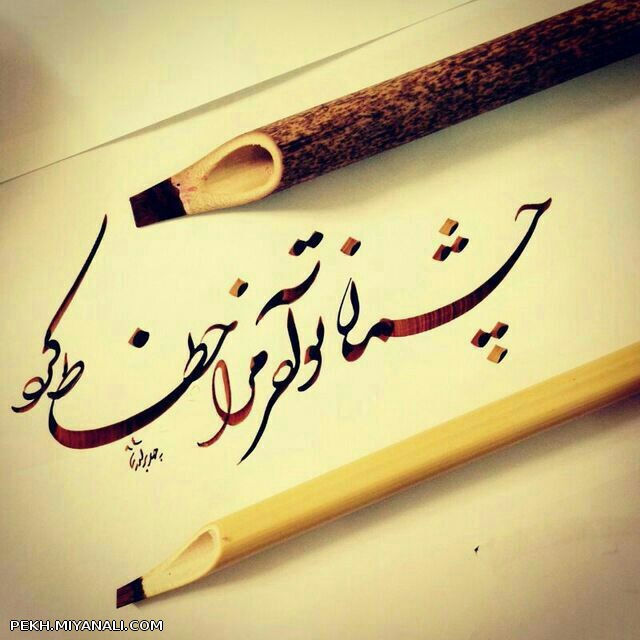 چشمان تو آخر مرا خطاط کرد
PEKH.MIYANALI.COM